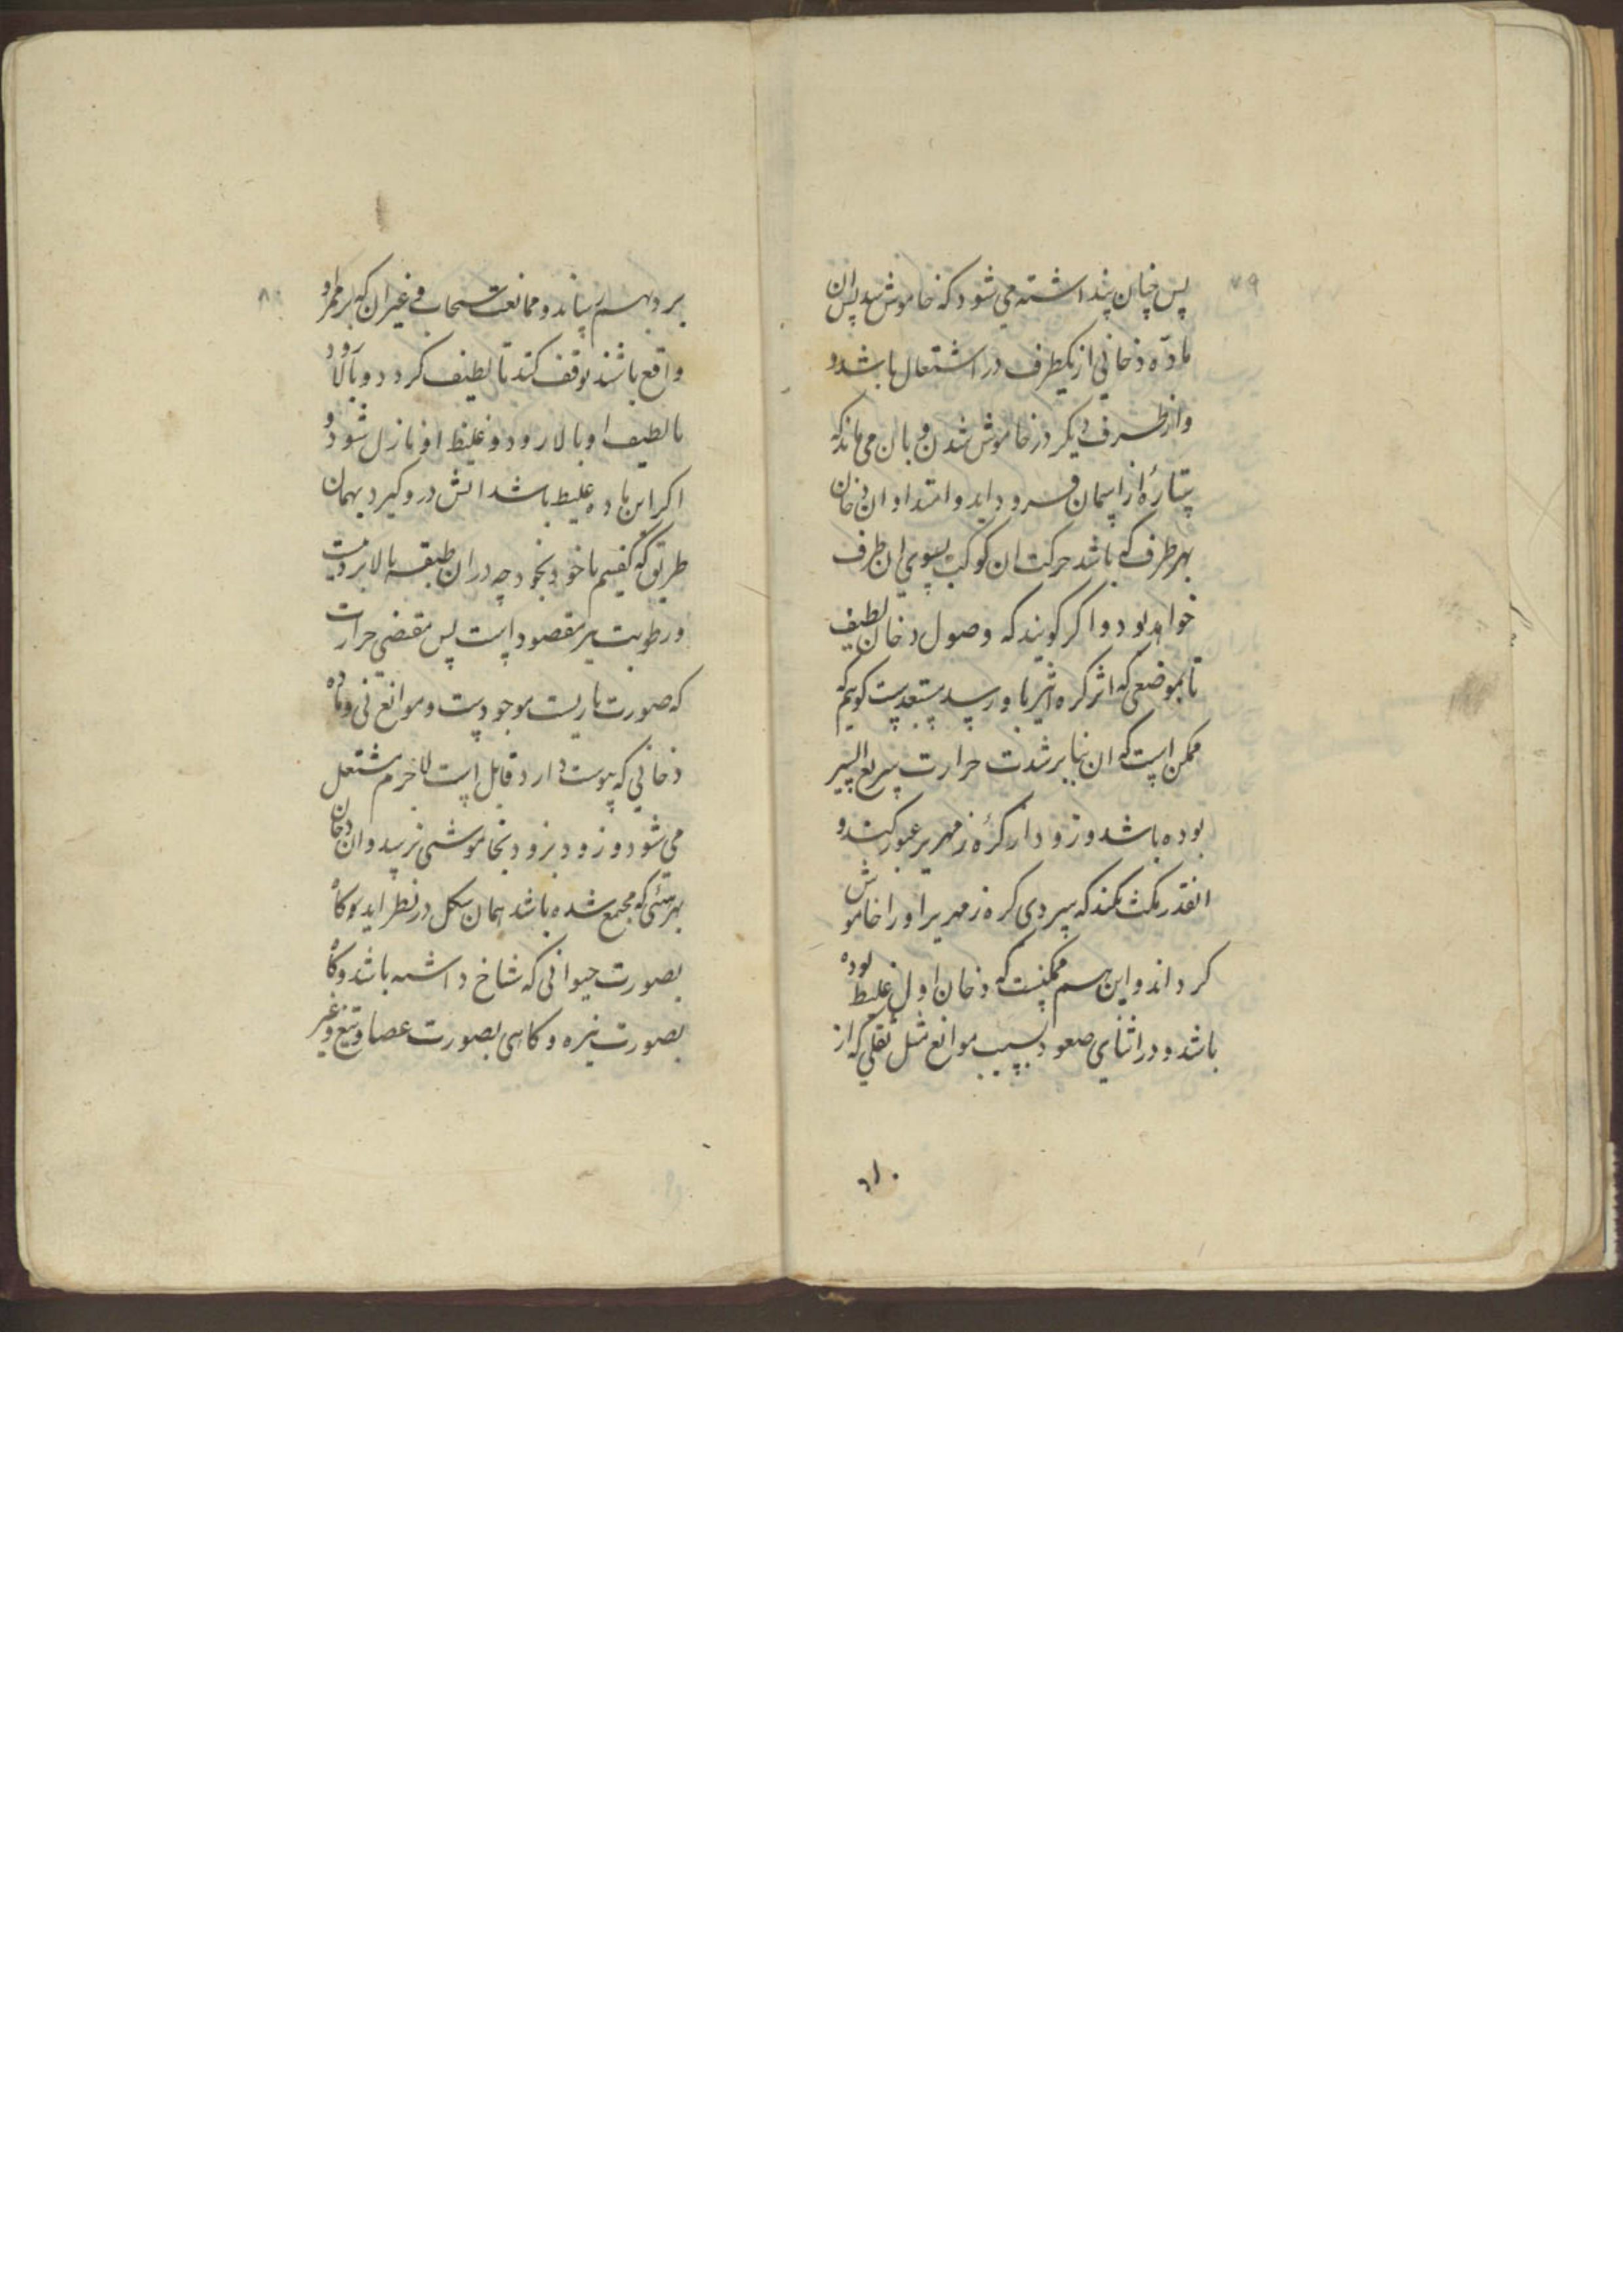 ۷۹
پس چنان پنداشته می شود که خاموش شد پس ان
مادّه دخانی از یکطرف در اشتعال باشد و
و از طرف دیکر در خاموش شدن و بان می ماند که
ستارهٔ از اسمان فرود اید و امتداد ان دخان
بهر طرف که باشد حرکت ان کوکب بسوی ان طرف
خواهد بود و اکر کویند که وصول دخان لطیف
تا بموضعی که اثر کره اثیر باو رسد مستبعدست کوئیم که
ممکن است که ان بنابر شدت حرارت سریع السیر
بوده باشد و زود از کرهٔ زمهریر عبور کند و
انقدر مکث نکند که سردی کره زمهریر او را خاموش
کرداند و این هم ممکنست که دخان اول غلیظ بوده
باشد و در اثنای صعود بسبب موانع مثل ثقلی که از
۸۰
برد بهم رساند و ممانعت سحاب و غیر ان که بر ممر او
واقع باشند توقف کند تا لطیف کردد و بالا رود
یا لطیف او بالا رود و غلیظ او نازل شود و
اکر این ماده غلیظ باشد اتش درو کیرد بهمان
طریق که کفتیم یا خود بخود چه در ان طبقه بالا برودت
و رطوبت مقصود است پس مقتضی حرارت
که صورت ناریست موجودست و موانع نی و ماده
دخانی که یبوست دارد قابل است لاجرم مشتعل
می شود و زود بزود بخاموشی نرسد و ان دخان
بهر هیئتی که مجتمع شده باشد بهمان شکل در نظر اید و کاه
بصورت حیوانی که شاخ داشته باشد و کاه
بصورت نیزه و کاهی بصورت عصا و تیغ و غیر